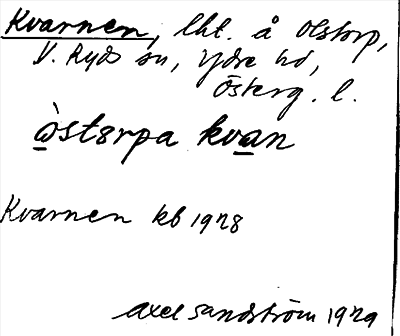 Kvarnen, lht. å Olstorp,
V. Ryds sn, Ydre hd,
Österg. l.
òstərpa kvan
Kvarnen kb 1928
Axel Sandström 1929